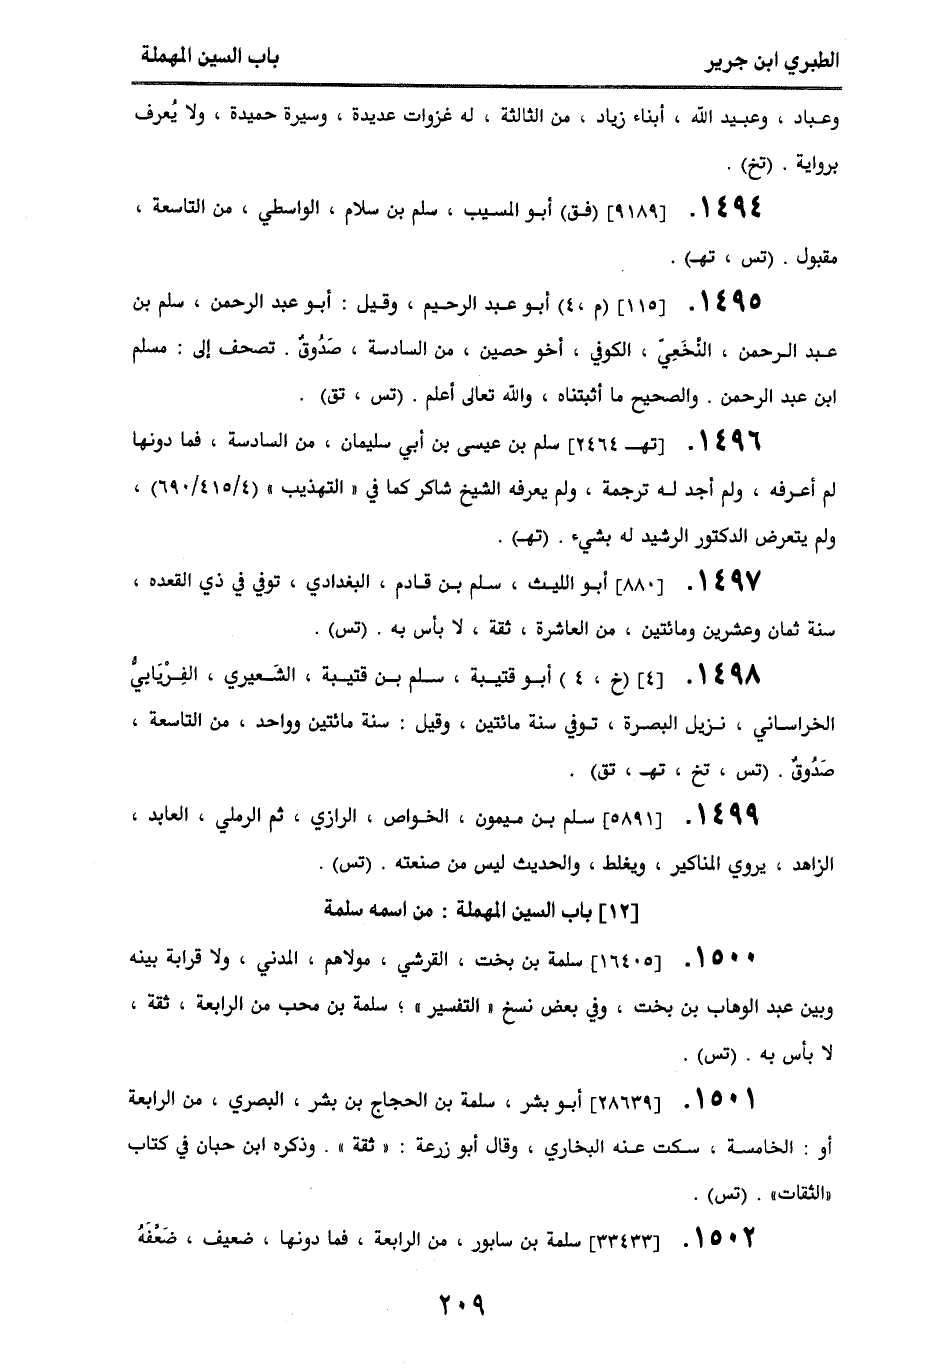 الطبري ابن جرير
باب السين المهملة
وعباد ، وعبيد الله ، أبناء زياد ، من الثالثة ، له غزوات عديدة ، وسيرة حميدة ، ولا يُعرف
برواية . (تخ) .
١٤٩٤. [٩١٨٩] (فق) أبو المسيب ، سلم بن سلام ، الواسطي ، من التاسعة ،
مقبول . (تس ، تهـ) .
١٤٩٥. [١١٥] (م ،٤) أبو عبد الرحيم ، وقيل : أبو عبد الرحمن ، سلم بن
عبد الرحمن ، النَّخَعِيّ ، الكوفي ، أخو حصين ، من السادسة ، صَدُوقٌ . تصحف إلى : مسلم
ابن عبد الرحمن . والصحيح ما أثبتناه ، والله تعالى أعلم . (تس ، تق) .
١٤٩٦. [تهـ ٢٤٦٤] سلم بن عيسى بن أبي سليمان ، من السادسة ، فما دونها
لم أعرفه ، ولم أجد له ترجمة ، ولم يعرفه الشيخ شاكر كما في « التهذيب » (٦٩٠/٤١٥/٤) ،
ولم يتعرض الدكتور الرشيد له بشيء . (تهـ) .
١٤٩٧. [٨٨٠] أبو الليث ، سلم بن قادم ، البغدادي ، توفي في ذي القعده ،
سنة ثمان وعشرين ومائتين ، من العاشرة ، ثقة ، لا بأس به . (تس) .
١٤٩٨. [٤] (خ ، ٤ ) أبو قتيبة ، سلم بن قتيبة ، الشَّعيري ، الفِرْيَابيُّ
الخراساني ، نزيل البصرة ، توفي سنة مائتين ، وقيل : سنة مائتين وواحد ، من التاسعة ،
صَدُوقٌ . (تس ، تخ ، تهـ ، تق) .
١٤٩٩. [٥٨٩١] سلم بن ميمون ، الخواص ، الرازي ، ثم الرملي ، العابد ،
الزاهد ، يروي المناكير ، ويغلط ، والحديث ليس من صنعته . (تس) .
[١٢] باب السين المهملة : من اسمه سلمة
١٥٠٠. [١٦٤٠٥] سلمة بن بخت ، القرشي ، مولاهم ، المدني ، ولا قرابة بينه
وبين عبد الوهاب بن بخت ، وفي بعض نسخ « التفسير » ؛ سلمة بن محب من الرابعة ، ثقة ،
لا بأس به . (تس) .
١٥٠١. [٢٨٦٣٩] أبو بشر ، سلمة بن الحجاج بن بشر ، البصري ، من الرابعة
أو : الخامسة ، سكت عنه البخاري ، وقال أبو زرعة : « ثقة » . وذكره ابن حبان في كتاب
«الثقات» . (تس) .
١٥٠٢. [٣٣٤٣٣] سلمة بن سابور ، من الرابعة ، فما دونها ، ضعيف ، ضَعَّفَهُ
٢٠٩